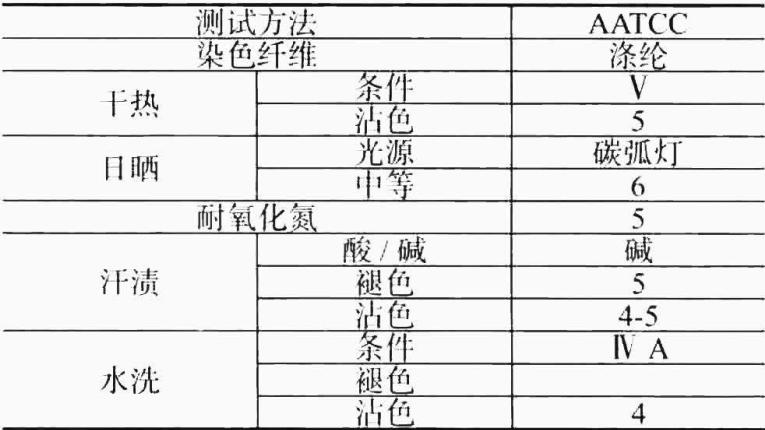 测试方法 AATCC
染色纤维 涤纶
干热 条件 V
沾色 5
日晒 光源 碳弧灯
中等 6
耐氧化氮 5
汗渍 酸/碱 碱
褪色 5
沾色 4-5
水洗 条件 Ⅳ A
褪色
沾色 4